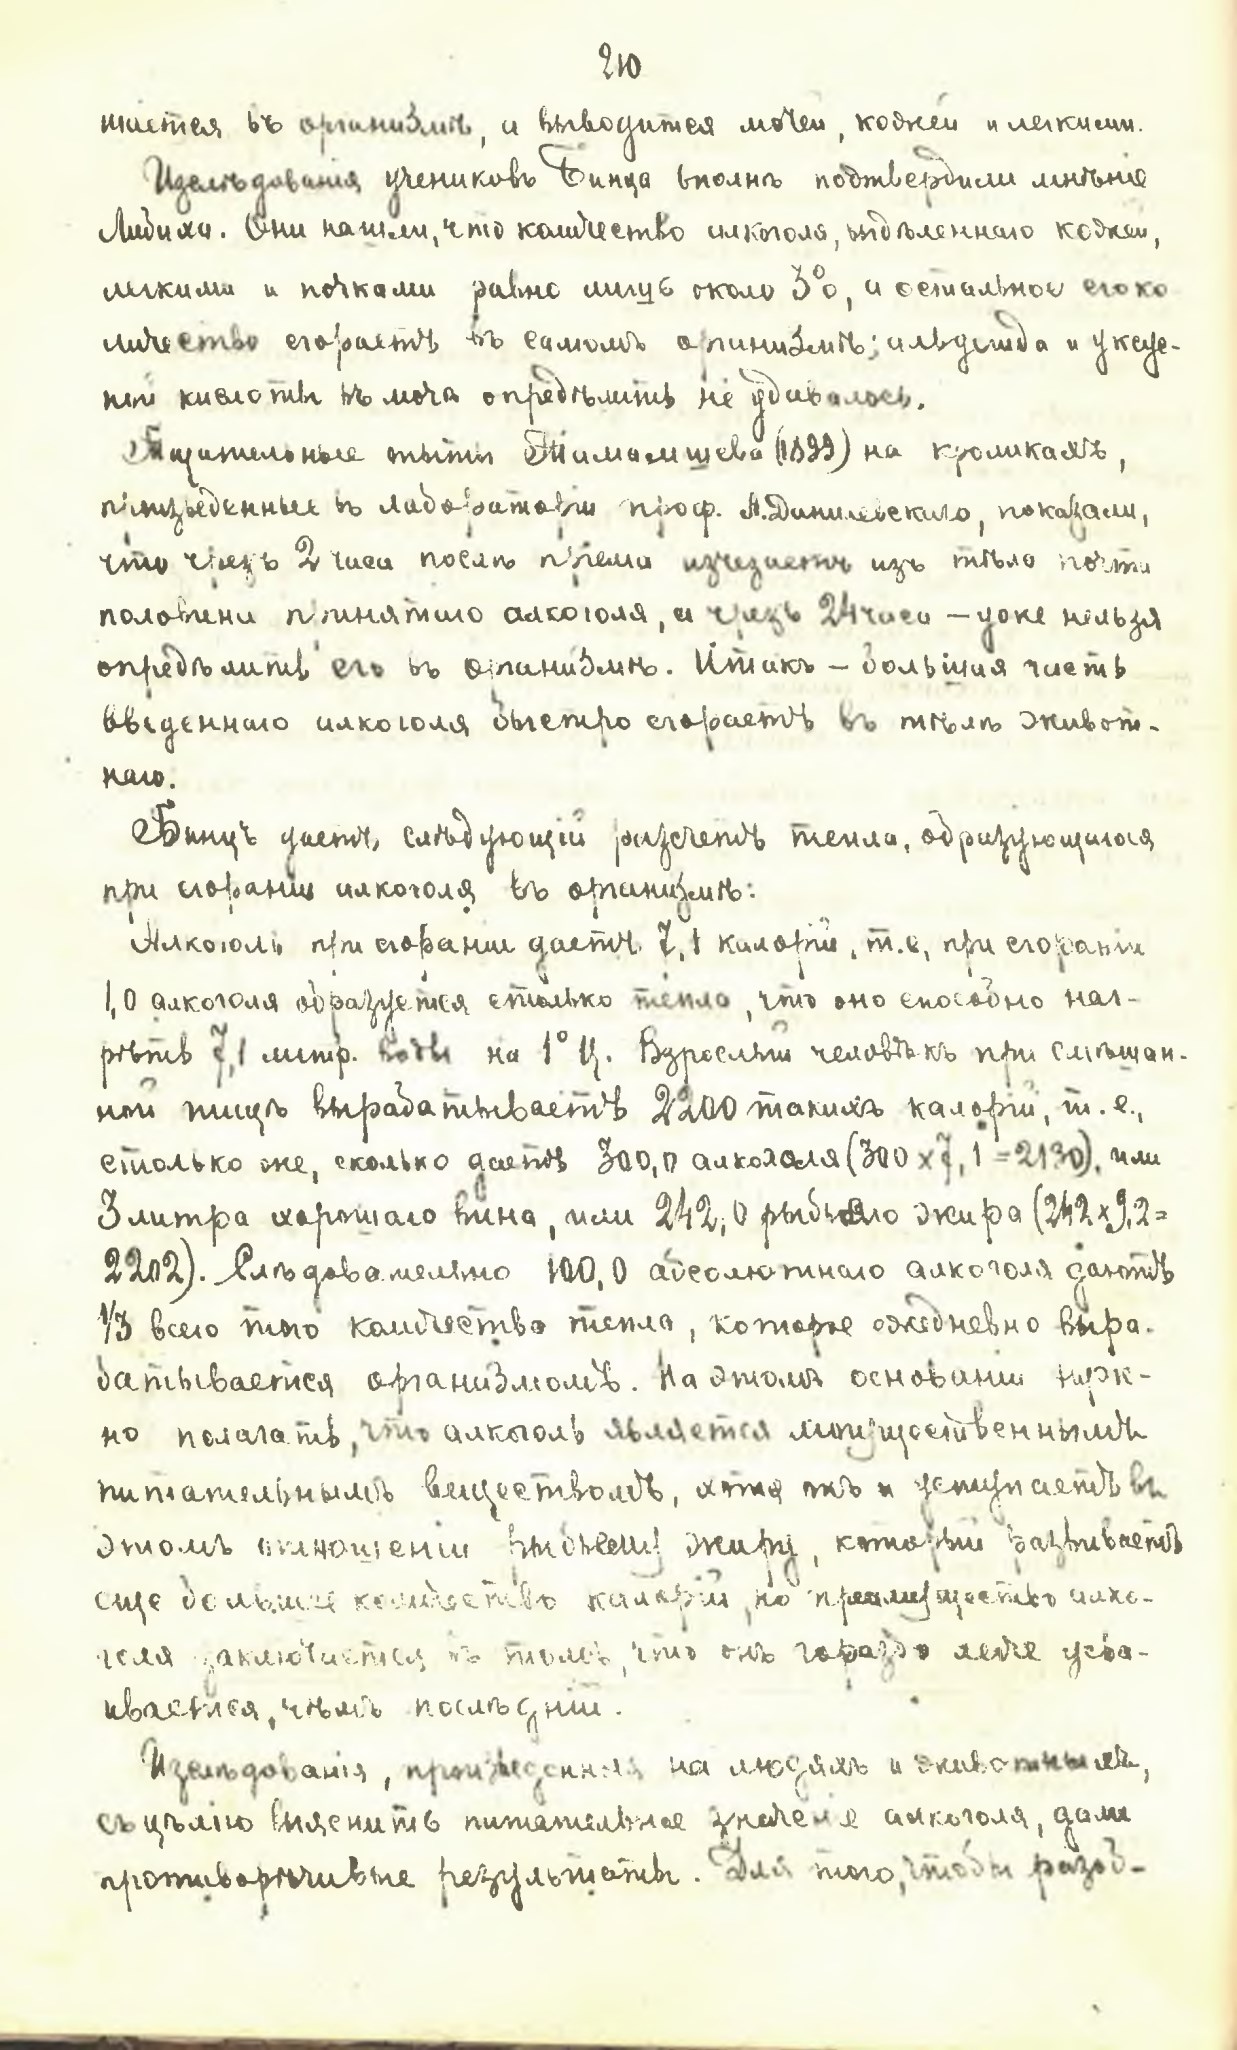 210
щается въ организмѣ, а выводится мочей, кожей и легкими.
Изслѣдованія учениковъ Бинца вполнѣ подтвердили мнѣніе
Либиха. Они нашли, что количество алкоголя, выдѣленнаго кожей,
легкими и почками равно лишь около 3%, а остальное его ко
личество сгораетъ въ самомъ организмѣ; альдегида и уксус-
ной кислоты въ мочѣ опредѣлить не удавалось.
Тщательные опыты (1899) на кроликахъ,
произведенные въ лабораторіи проф. А. Данилевскаго, показали,
что чрезъ 2 часа послѣ пріема изчезаетъ изъ тѣла почти
половина принятаго алкоголя, а чрезъ 24 часа — уже нельзя
опредѣлить его въ организмѣ. Итакъ — большая часть
введеннаго алкоголя быстро сгораетъ въ тѣлѣ живот-
наго.
Бинцъ даетъ слѣдующій разсчетъ тепла, образующагося
при сгораніи алкоголя въ организмѣ:
Алкоголь при сгораніи даетъ 7,1 калорій, т.е, при сгораніи
1,0 алкоголя образуется столько тепла, что оно способно наг-
рѣть 7,1 литр. воды на 1° Ц. Взрослый человѣкъ при смѣшан-
ной пищѣ вырабатываетъ 2200 такихъ калорій, т. е.,
столько же, сколько даетъ 300,0 алкоголя (300 x 7,1 = 2130), или
3 литра хорошаго вина, или 242,0 рыбьяго жира (242 x 9,2 =
2202). Слѣдовательно 100,0 абсолютнаго алкоголя даютъ
1/3 всего того количества тепла, которое ежедневно выра-
батывается организмомъ. На этомъ основаніи нуж-
но полагать, что алкоголь является могущественнымъ
питательнымъ веществомъ, хотя онъ и уступаетъ въ
этомъ отношеніи рыбьему жиру, который развиваетъ
еще большее количество калорій, но преимущество алко-
голя заключается въ томъ, что онъ гораздо легче усва-
ивается, чѣмъ послѣдній.
Изслѣдованія, произведенныя на людяхъ и животныхъ,
съ цѣлію выяснить питательное значеніе алкоголя, дали
противорѣчивые результаты. Для того, чтобы разоб-